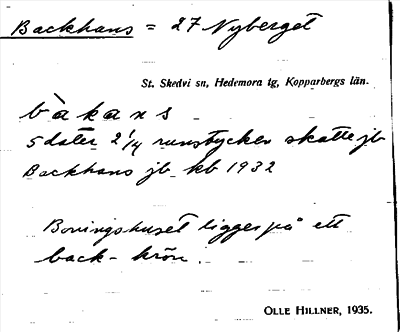 Backhans = 27 Nyberget
St. Skedvi sn, Hedemora tg, Kopparbergs län.
bàkans
5 dater 2 1/4 runstycken skatte jb
Backhans jb kb 1932
Boningshuset ligger på ett
back-krön.
OLLE HILLNER, 1935.